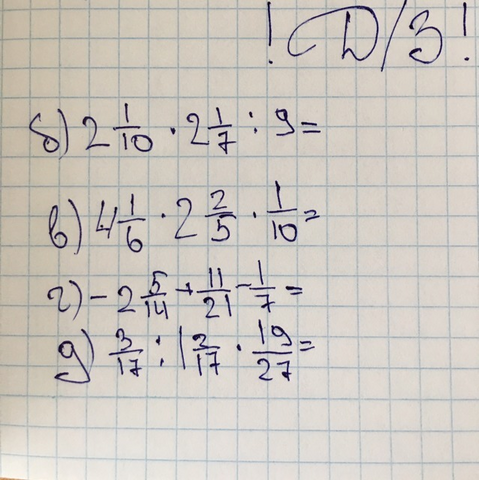 ! Д/З !
б) 2 1/10 · 2 1/7 : 9 =
в) 4 1/6 · 2 2/5 · 1/10 =
г) - 2 5/14 + 11/21 - 1/7 =
д) 3/17 : 1 2/17 · 19/27 =